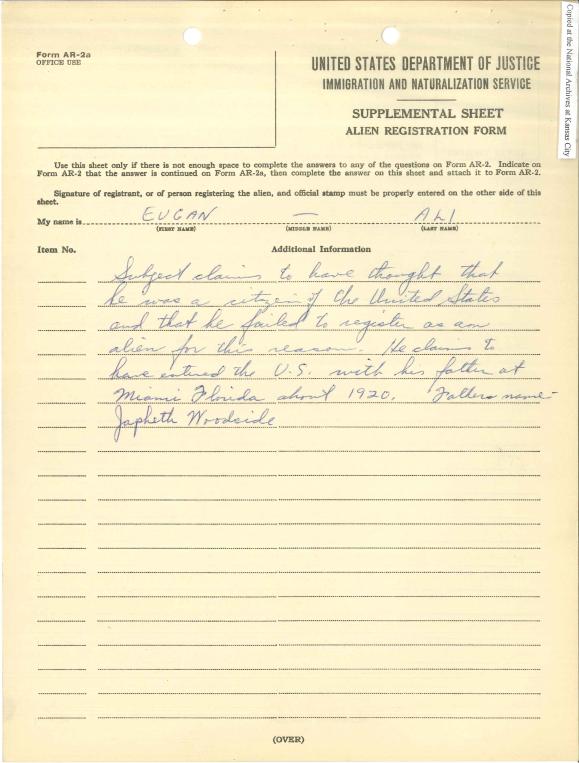 Copied at the National Archives at Kansas City
Form AR-2a
OFFICE USE
UNITED STATES DEPARTMENT OF JUSTICE
IMMIGRATION AND NATURALIZATION SERVICE
SUPPLEMENTAL SHEET
ALIEN REGISTRATION FORM
Use this sheet only if there is not enough space to complete the answers to any of the questions on Form AR-2. Indicate on
Form AR-2 that the answer is continued on Form AR-2a, then complete the answer on this sheet and attach it to Form AR-2.
Signature of registrant, or of person registering the alien, and official stamp must be properly entered on the other side of this
sheet.
My name is EUGAN — ALI
(FIRST NAME) (MIDDLE NAME) (LAST NAME)
Item No. Additional Information
Subject claims to have thought that
he was a citizen of the United States
and that he failed to register as an
alien for this reason. He claims to
have entered the U.S. with his father at
Miami Florida about 1920. Fathers name-
Japheth Woodside
(OVER)